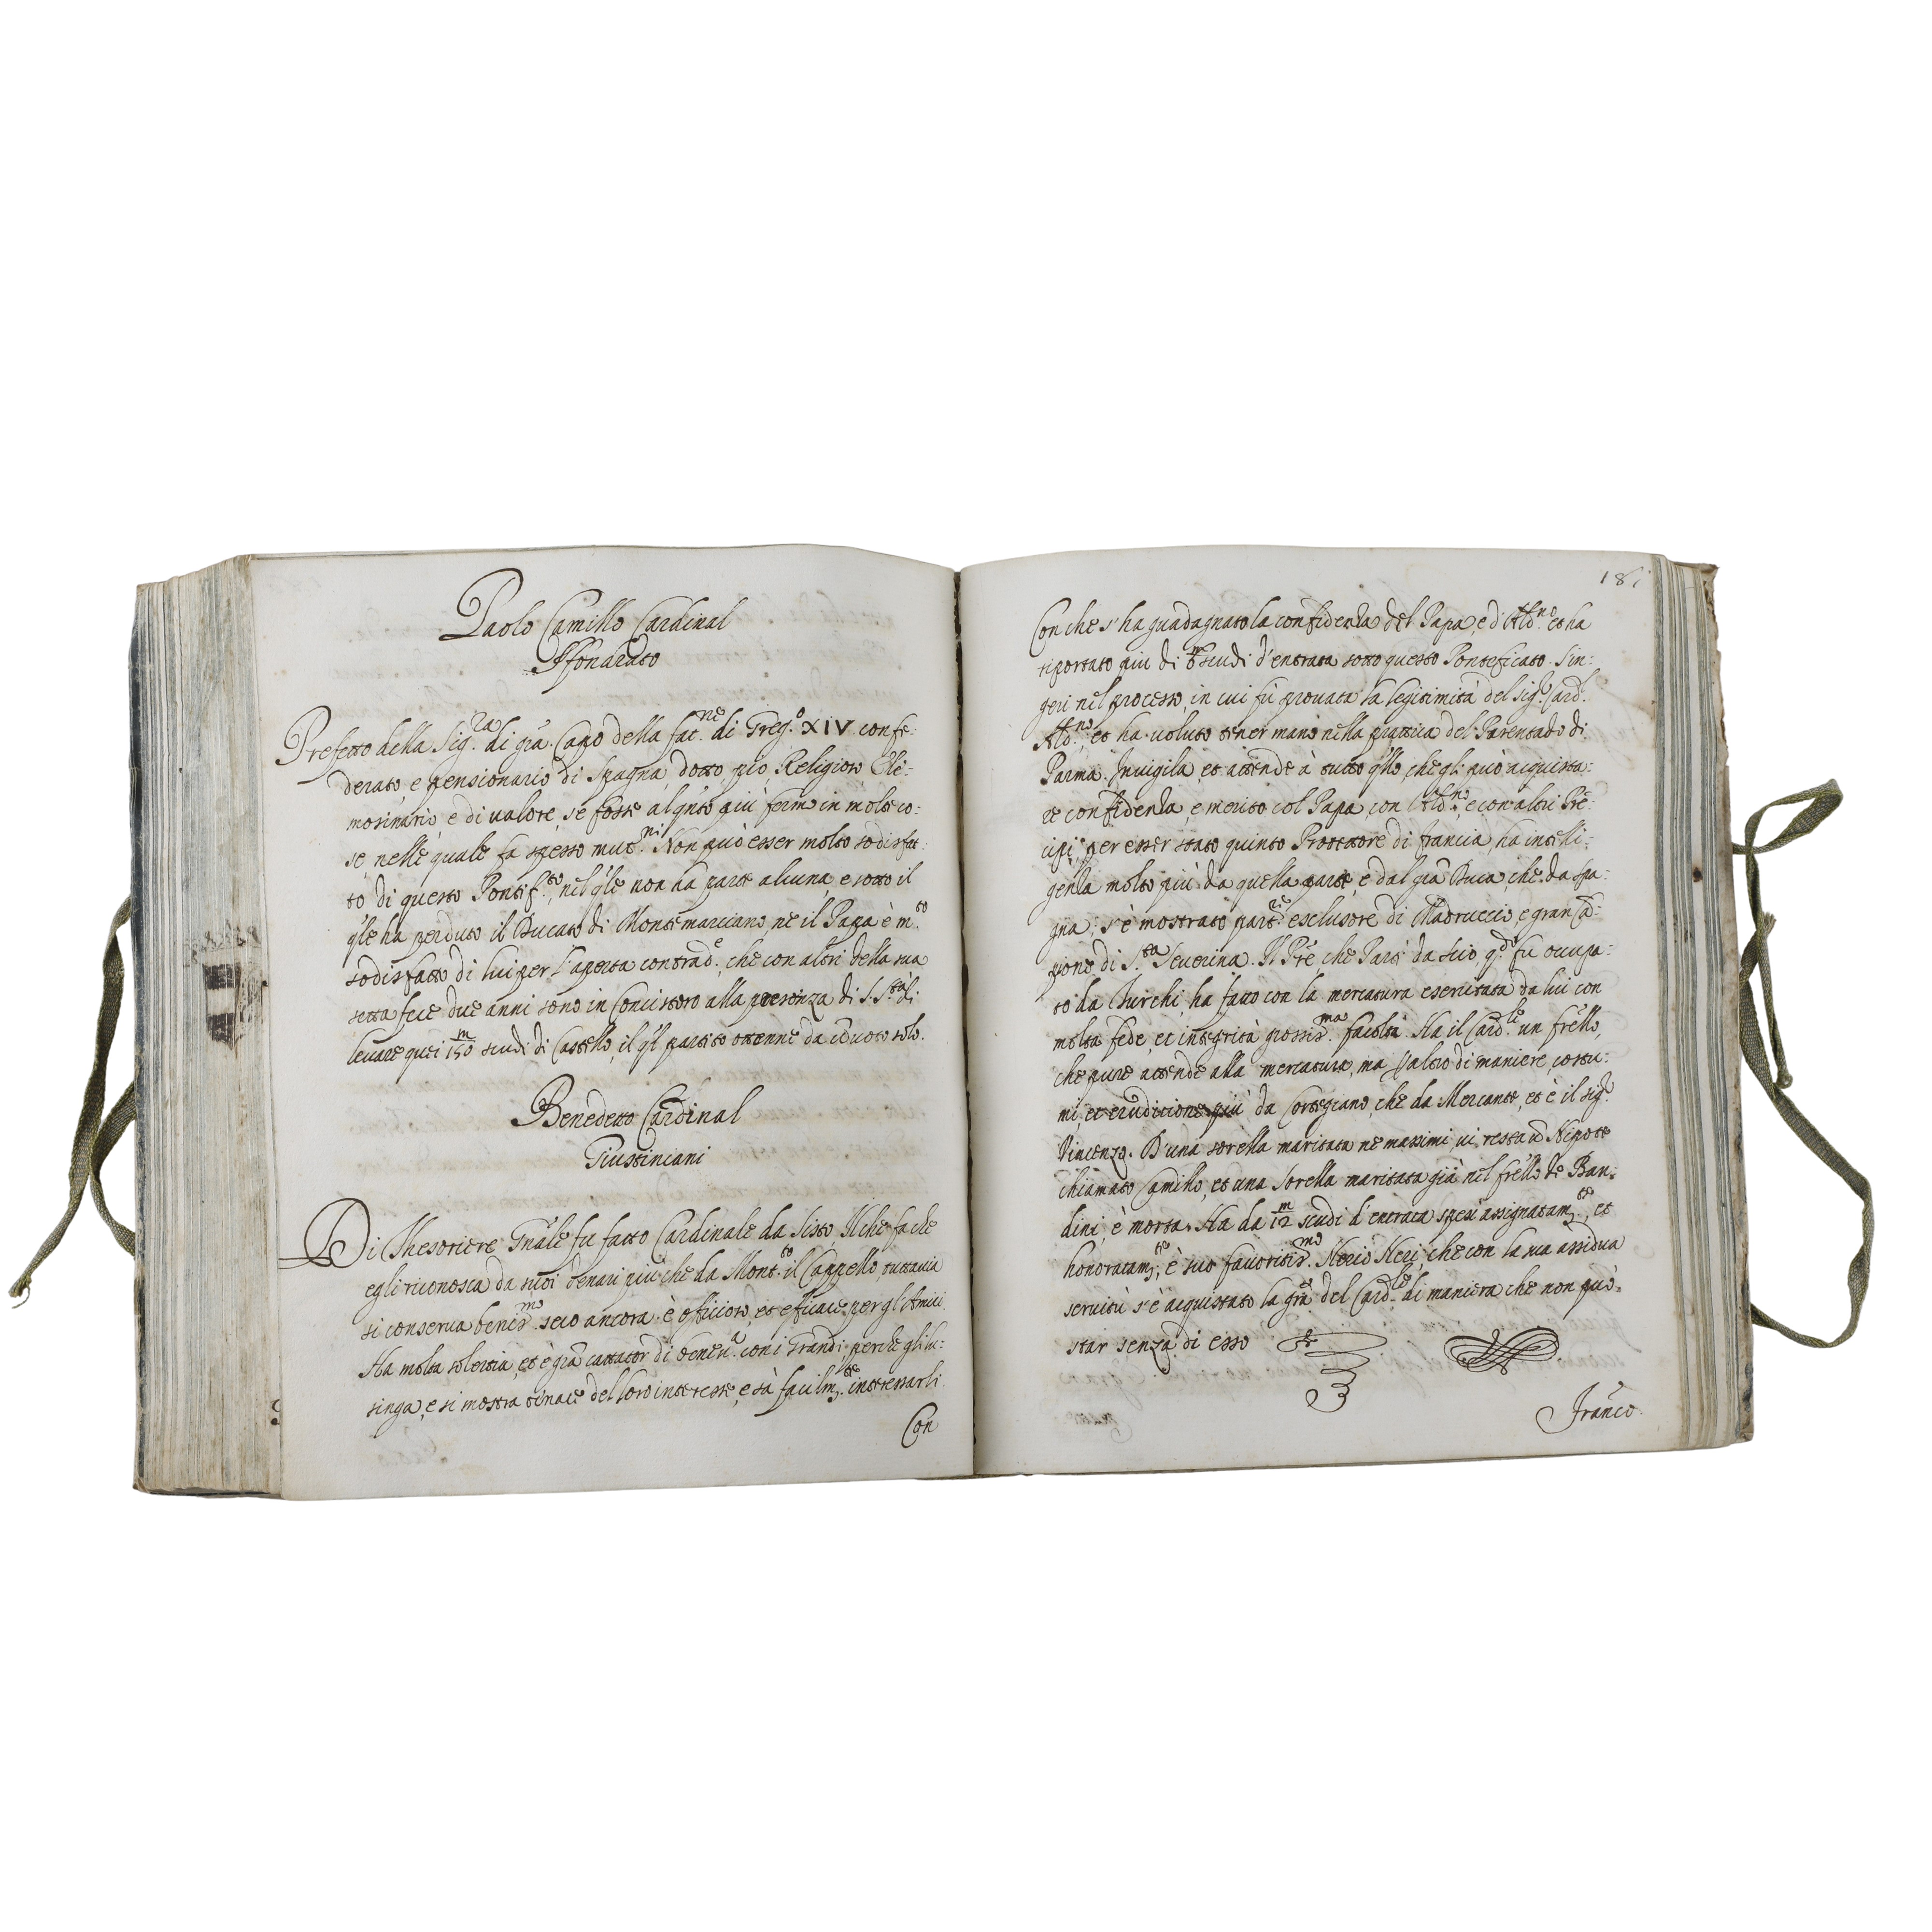 Paolo Camillo Cardinal
Sfondrato
Prefetto della Sig.ra di già Capo della fat.ne di Greg.o XIV confe=
derato, e pensionario di Spagna, dotto, pio, Religioso Ele=
mosinario e di valore, se fosse alqnto più fermo in molte co=
se, nelle quale fa spesso mut.ni Non può esser molto sodisfat=
to di questo Pontif.to, nel qle non ha parte alcuna, e sotto il
qle ha perduto il Ducato di Montemarciano, ne il Papa è m.to
sodisfatto di lui per l'aperta contrad.e, che con altri della sua
setta fece due anni sono in Concistoro alla presenza di S. S.tà di
levare quei 150 m scudi di Castello, il ql partito ottenne da un voto solo.
Benedetto Cardinal
Giustiniani
Di Thesoriere Gnale fu fatto Cardinale da Sisto, Il che fa che
egli riconosca da suoi denari più che da Mont.to il Cappello, tuttavia
si conserva beniss.mo seco ancora. è officioso, et efficace per gl'Amici
Ha molta solertia, et è gra cattator di benev.a con i Grandi, perche gli lu=
singa, e si mostra tenace del loro interesse, e sà facilm.te interessarli
Con
181
Con che s'ha guadagnato la confidenza del Papa, e d'Ald.no et ha
riportato più di 6 m scudi d'entrata sotto questo Ponteficato. S'in=
gerì nel processo, in cui fù provata la legitimità del Sig.r Card.
Ald.no, et ha voluto tener mano nella prattica del Parentado di
Parma. Invigila, et attende à tutto qllo, che gli può acquista=
re confidenza, e merito col Papa, con Ald.no, e con altri Pre=
cipi, per esser stato quinto Protettore di francia, ha inteli=
genza molto più da quella parte, e dal gra Duca, che da Spa=
gna; s'è mostrato part.re esclusore di Madruccio, e gran Ca=
pione di S.ta Severina. Il Pre che Partì da Scio, qdo fu occupa=
to da Turchi, ha fatto con la mercatura esercitata da lui con
molta fede, et integrità grossiss.ma facoltà. Ha il Card.le un frello,
che pure attende alla mercatura, ma p altro di maniere, costu=
mi, et eruditione più da Cortegiano, che da Mercante, et è il Sig.r
Vincenzo. D'una sorella maritata ne massimi, vi resta un Nipote
chiamato Camillo, et una sorella maritata già nel frello de Ban=
dini, è morta. Ha da 12 m scudi d'entrata spesi assignatam.te, et
honoratam.te, è suo favoritiss.mo Nerio Neri, che con la sua assidua
servitù s'è acquistato la gra del Card.le di maniera che non può
star senza di esso
Franco